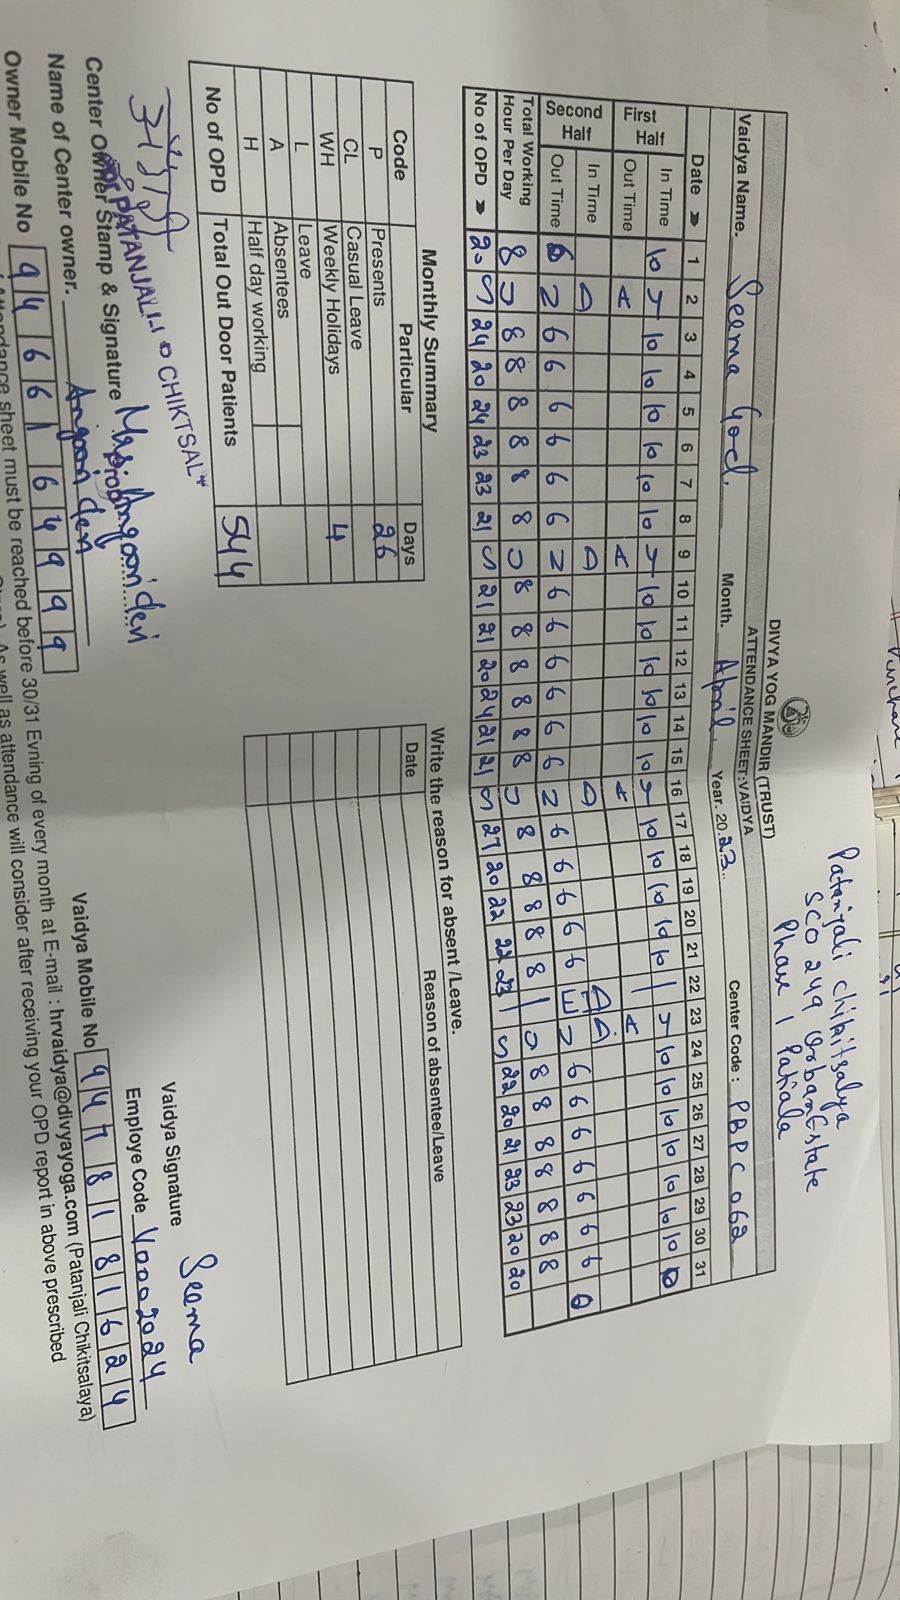 Patanjali Chikitsalya
SCO 249 Urban Estate
Phase 1 Patiala
DIVYA YOG MANDIR (TRUST)
ATTENDANCE SHEET:VAIDYA
Vaidya Name. Seema Goel. Month. April. Year. 2023.. Center Code : PBPC062
Date 1 2 3 4 5 6 7 8 9 10 11 12 13 14 15 16 17 18 19 20 21 22 23 24 25 26 27 28 29 30 31
First Half
In Time 10 10 10 10 10 10 10 10 10 10 10 10 10 10 10 10 10 10 10 10 10 10 10 10 10 10
Out Time
Second Half
In Time
Out Time 6 6 6 6 6 6 6 6 6 6 6 6 6 6 6 6 6 6 6 6 6 6 6 6 6
SUNDAY SUNDAY SUNDAY EID SUNDAY
Total Working Hour Per Day 8 8 8 8 8 8 8 8 8 8 8 8 8 8 8 8 8 8 8 8 8 8 8 8 8
No of OPD 20 24 20 24 23 23 21 21 21 20 24 21 21 27 20 22 22 23 22 20 21 23 23 20 20
Monthly Summary
Code Particular Days
P Presents 26
CL Casual Leave
WH Weekly Holidays 4
L Leave
A Absentees
H Half day working
No of OPD Total Out Door Patients 544
Write the reason for absent /Leave.
Date Reason of absentee/Leave
For PATANJALI CHIKTSAL
Prop
Center Owner Stamp & Signature Mrs. Angoori devi
Name of Center owner. Angoori devi
Owner Mobile No 9466164999
Vaidya Signature Seema
Employe Code V0002024
Vaidya Mobile No 9478181624
Attendance sheet must be reached before 30/31 Evning of every month at E-mail : hrvaidya@divyayoga.com (Patanjali Chikitsalaya)
As well as attendance will consider after receiving your OPD report in above prescribed